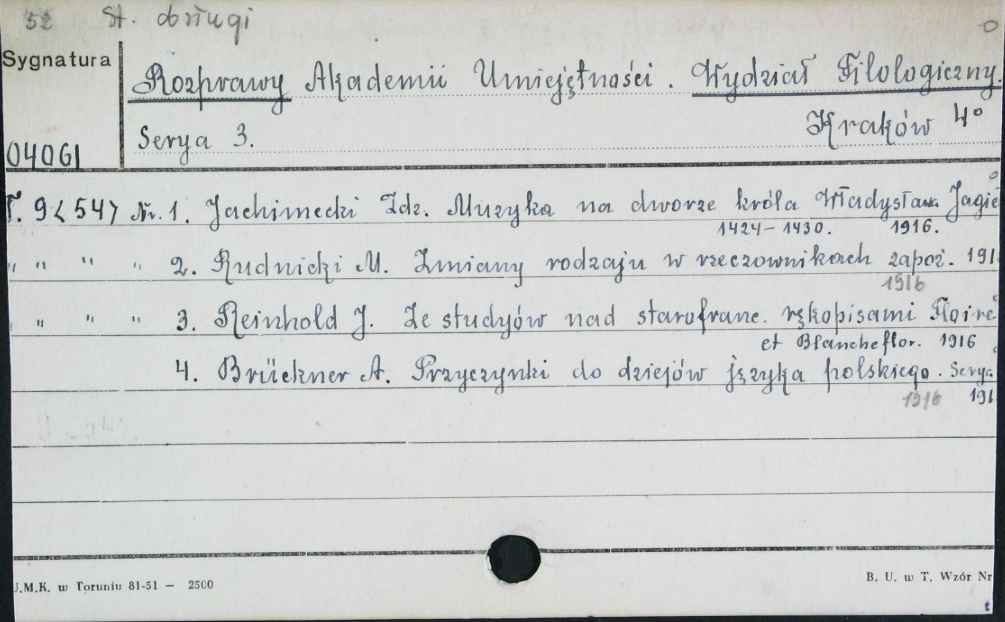 52 St. długi
Sygnatura
Rozprawy Akademii Umiejętności. Wydział Filologiczny
Serya 3. Kraków 4°
04061
T. 9<54> Nr. 1. Jachimecki Zdz. Muzyka na dworze króla Władysław. Jagie
1424-1430. 1916.
" " " " 2. Rudnicki M. Zmiany rodzaju w rzeczownikach zapoż. 191
1916
" " " " 3. Reinhold J. Ze studyów nad starofranc. rękopisami Floire
et Blancheflor. 1916
4. Brückner A. Przyczynki do dziejów języka polskiego. Serya
1916 191
U.M.K. w Toruniu 81-51 — 2500
B. U. w T. Wzór Nr
t